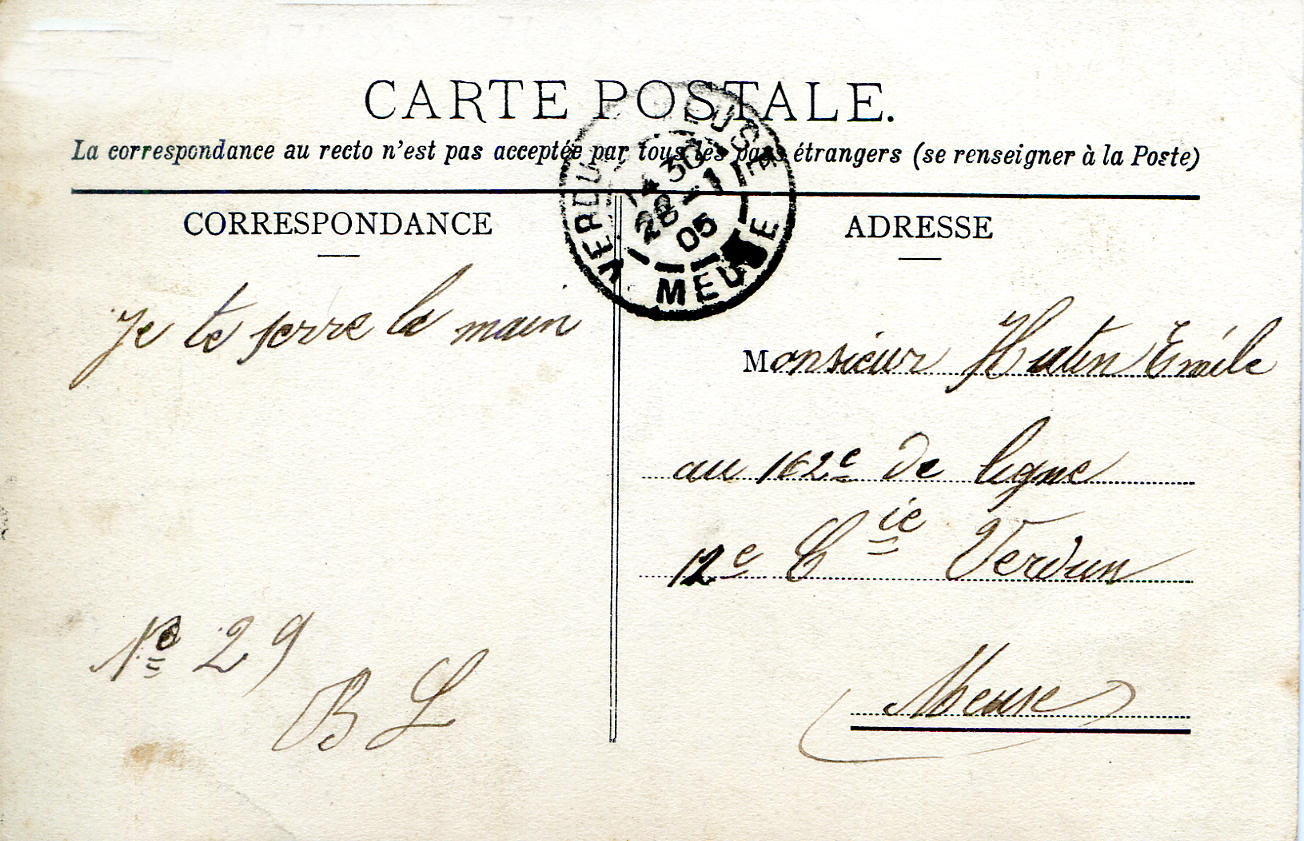 CARTE POSTALE.
La correspondance au recto n'est pas acceptée par tous les pays étrangers (se renseigner à la Poste)
VERDU
MEUSE
14 30
28 - 1
05
CORRESPONDANCE
ADRESSE
Je te serre la main
Monsieur Hutin Emile
au 162e de ligne
12e Cie Verdun
Meuse
No 29
B L